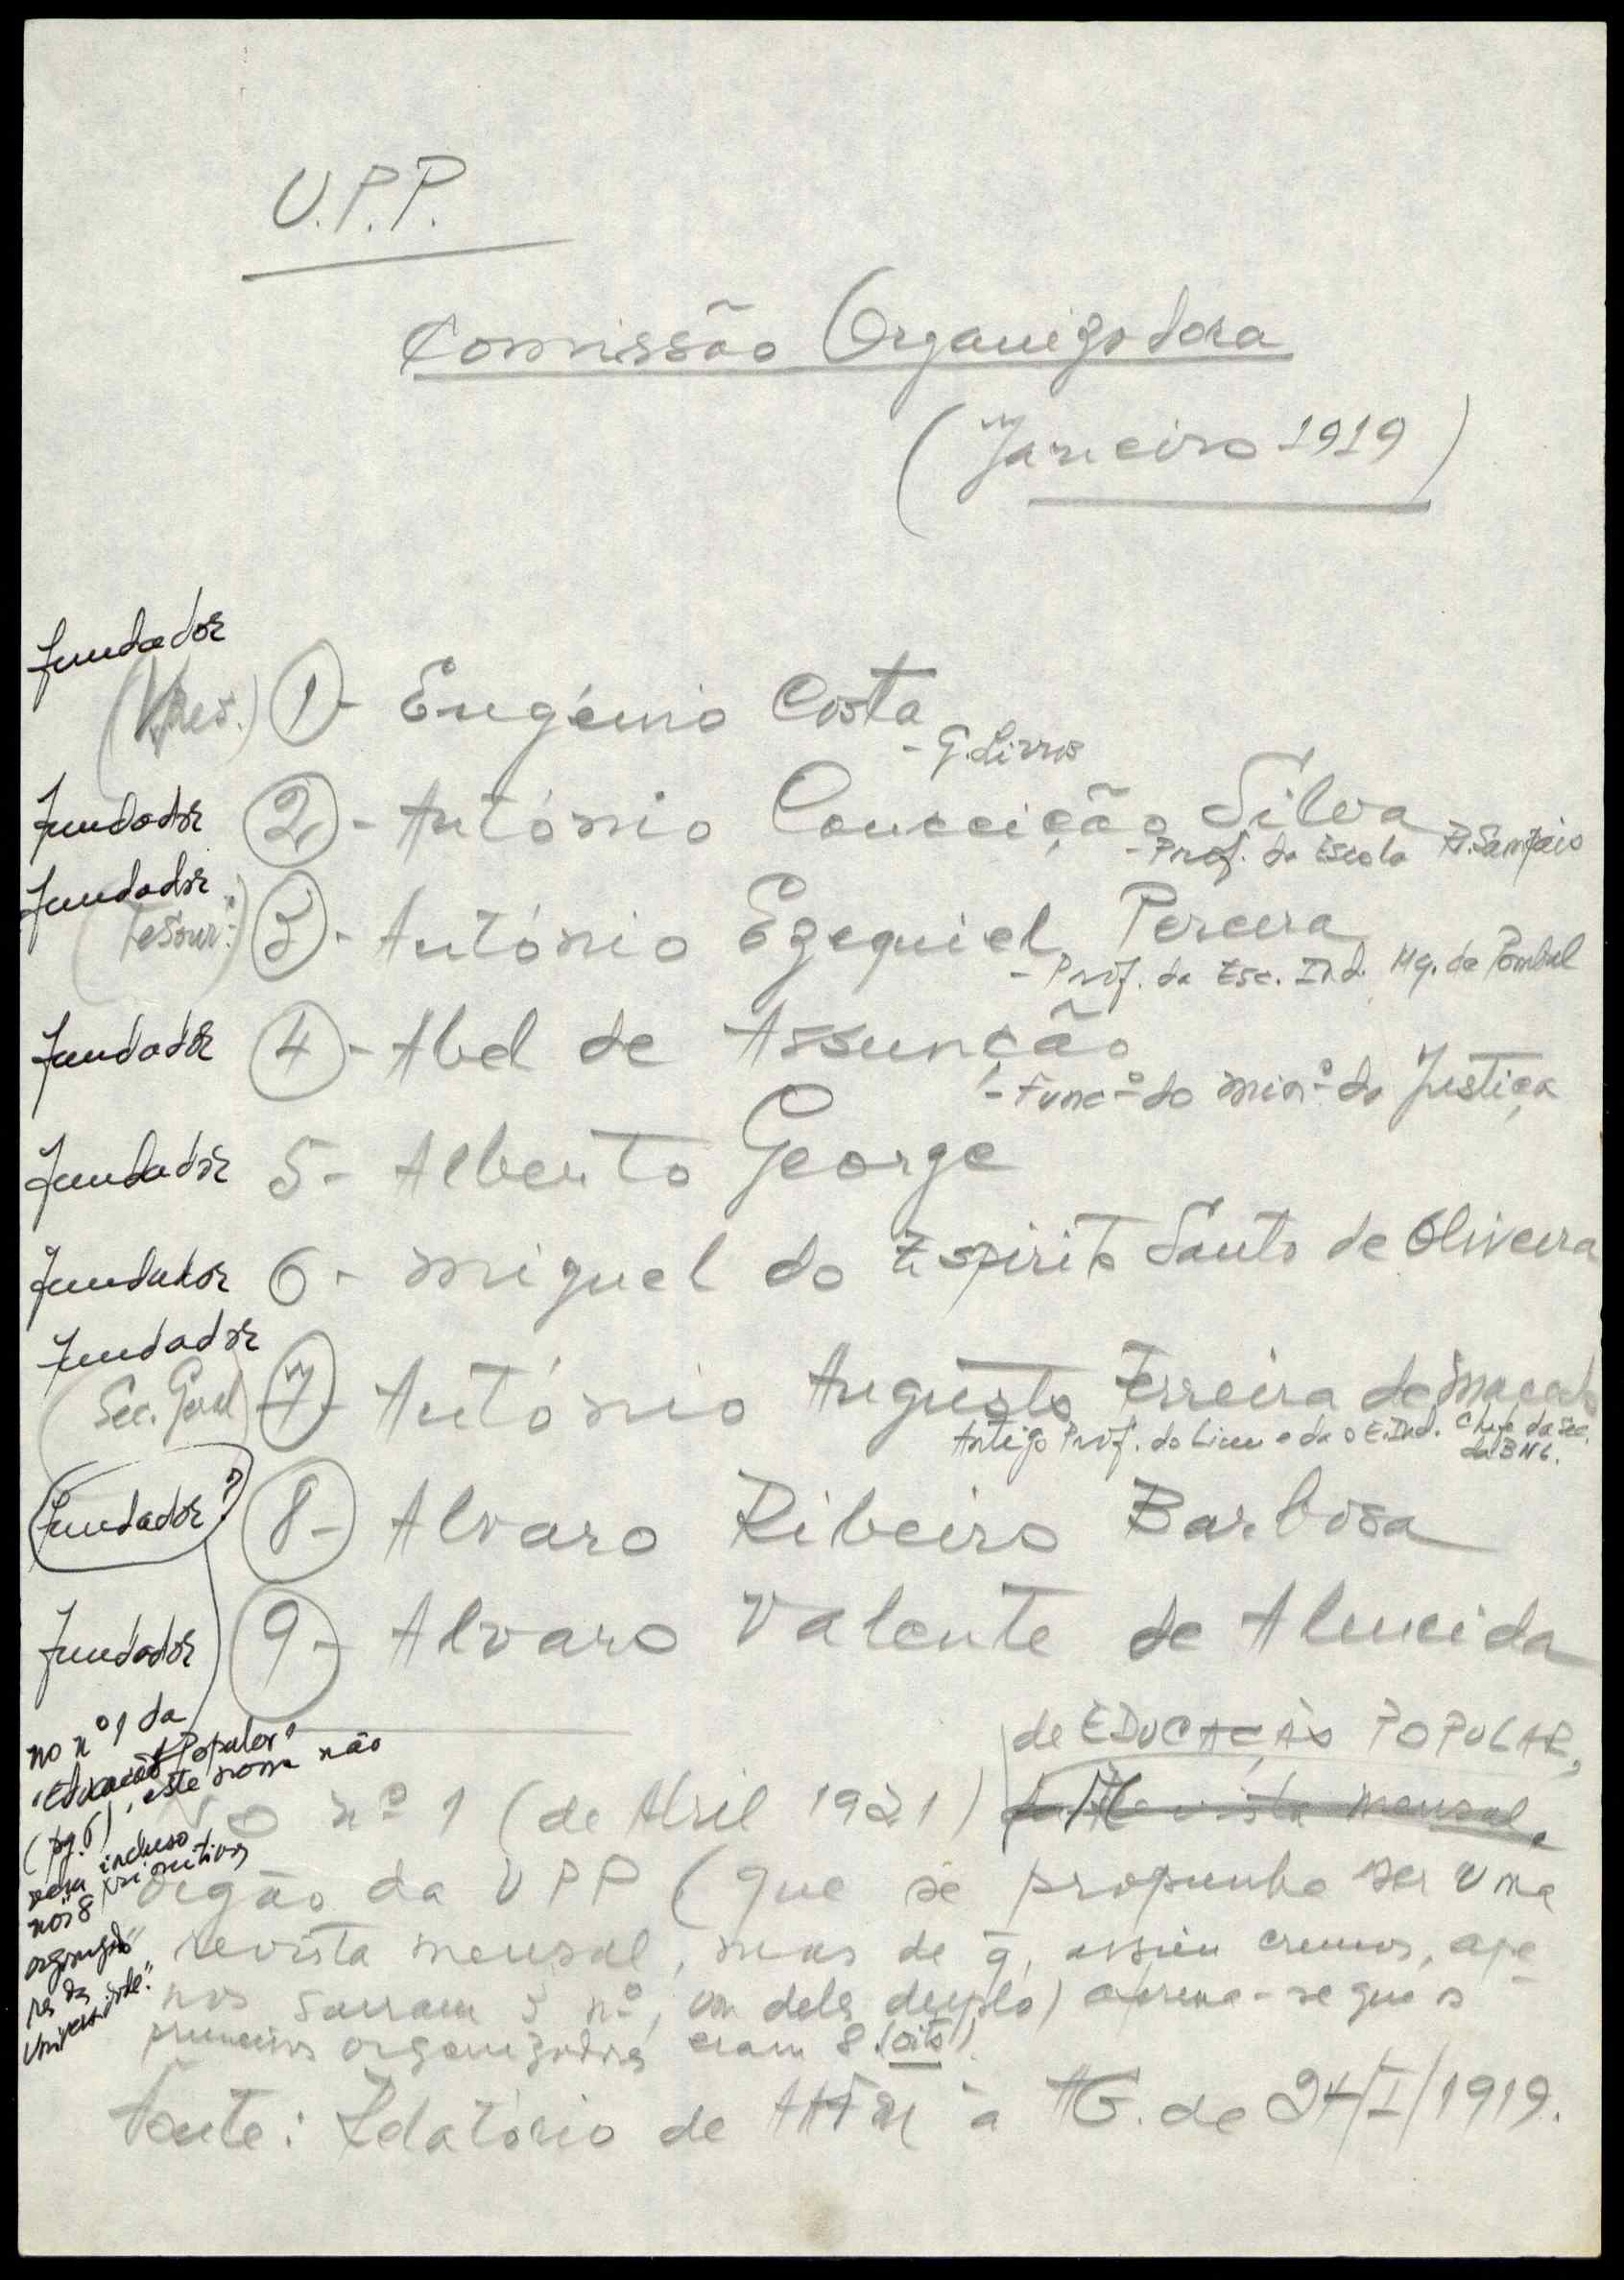 U.P.P.
Comissão Organizadora
(Janeiro 1919)
fundador
(Pres.) 1- Eugénio Costa
- G. Livros
fundador 2- António Conceição Silva
- Prof. da Escola R. Sampaio
fundador
(Tesour.º) 3- António Ezequiel Pereira
- Prof. da Esc. Ind. Mq. de Pombal
fundador 4- Abel de Assunção
- Func.º do Min.º da Justiça
fundador 5- Alberto George
fundador 6- Miguel do Espirito Santo de Oliveira
fundador
(Sec. Geral) 7- António Augusto Ferreira de Macedo
Antigo Prof. do Liceu e da E. Ind. Chefe da Sec.
da BNL.
fundador? 8- Alvaro Ribeiro Barbosa
fundador 9- Alvaro Valente de Almeida
no nº 1 da
"Educação Popular"
(pg. 6), este nome não
vem incluso
nos 8 primitivos
organizado
res da
Universidade."
de EDUCAÇÃO POPULAR,
No nº 1 (de Abril 1921) da Revista mensal,
órgão da UPP (que se propunha ser uma
revista mensal, mas de q, assim cremos, ape
nas sairam 5 nº, um deles duplo) afirma-se que os
primeiros organizadores eram 8 (oito).
Fonte: Relatório de AAFM à AG. de 24/I/1919.